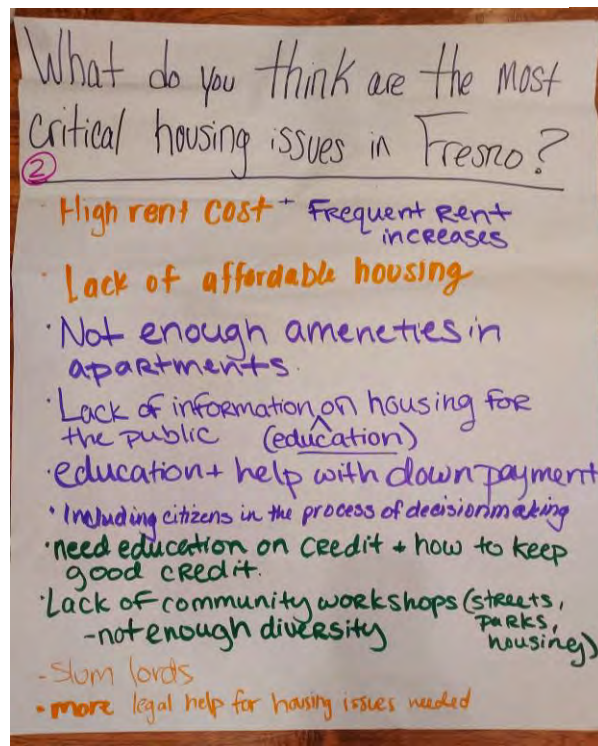 What do you think are the most
critical housing issues in Fresno?
2
· High rent cost + Frequent Rent
increases
· Lack of affordable housing
· Not enough ameneties in
apartments.
· Lack of information on housing for
the public (education)
· education + help with down payment
· Including citizens in the process of decisionmaking
· need education on credit + how to keep
good credit.
· Lack of community workshops (streets,
parks,
- not enough diversity housing)
- Slum lords
· more legal help for housing issues needed